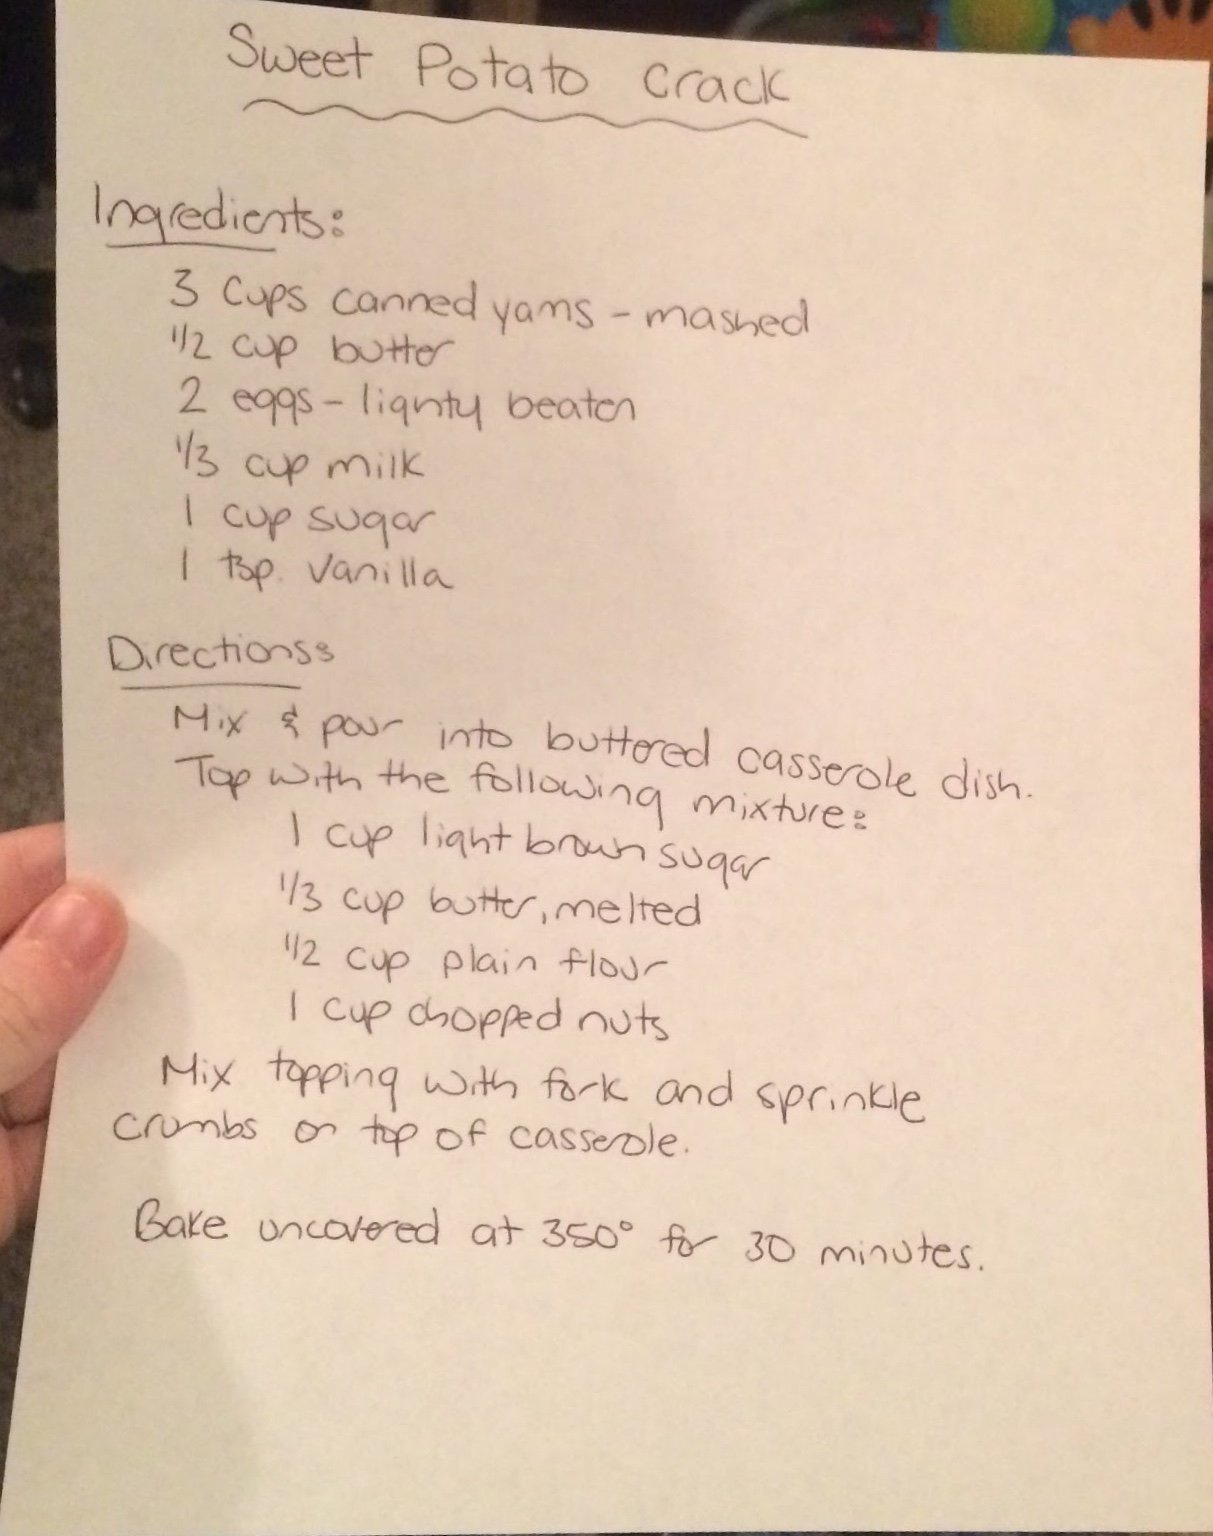 Sweet Potato Crack
Ingredients:
3 Cups canned yams - mashed
1/2 cup butter
2 eggs - lightly beaten
1/3 cup milk
1 cup sugar
1 tsp. vanilla
Directions:
Mix & pour into buttered casserole dish.
Top with the following mixture:
1 cup light brown sugar
1/3 cup butter, melted
1/2 cup plain flour
1 cup chopped nuts
Mix topping with fork and sprinkle
crumbs on top of casserole.
Bake uncovered at 350° for 30 minutes.